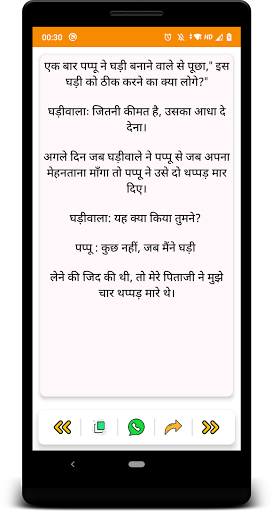 00:30
HD
एक बार पप्पू ने घड़ी बनाने वाले से पूछा," इस
घड़ी को ठीक करने का क्या लोगे?"
घड़ीवालाः जितनी कीमत है, उसका आधा दे
देना।
अगले दिन जब घड़ीवाले ने पप्पू से जब अपना
मेहनताना माँगा तो पप्पू ने उसे दो थप्पड़ मार
दिए।
घड़ीवाला: यह क्या किया तुमने?
पप्पू : कुछ नहीं, जब मैंने घड़ी
लेने की जिद की थी, तो मेरे पिताजी ने मुझे
चार थप्पड़ मारे थे।